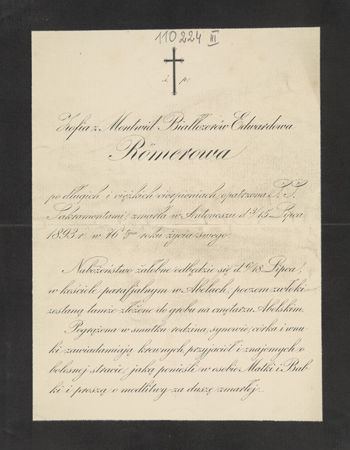 110224 III
Ś. P.
Zofia z Montwid Białłozorów Edwardowa
Römerowa
po długich i ciężkich cierpieniach, opatrzona Ś. Ś.
Sakramentami, zmarła w Antonoszu d. 15 Lipca
1893 r. w 76 roku życia swego.
Nabożeństwo żałobne odbędzie się d. 18 Lipca,
w kościele parafialnym w Abelach, poczem zwłoki
zostaną tamże złożone do grobu na cmętarzu Abelskim.
Pogrążona w smutku rodzina, synowie, córka i wnu
ki zawiadamiają krewnych, przyjaciół i znajomych o
bolesnej stracie, jaką ponieśli w osobie Matki i Bab
ki i proszą o modlitwy za duszę zmarłej.